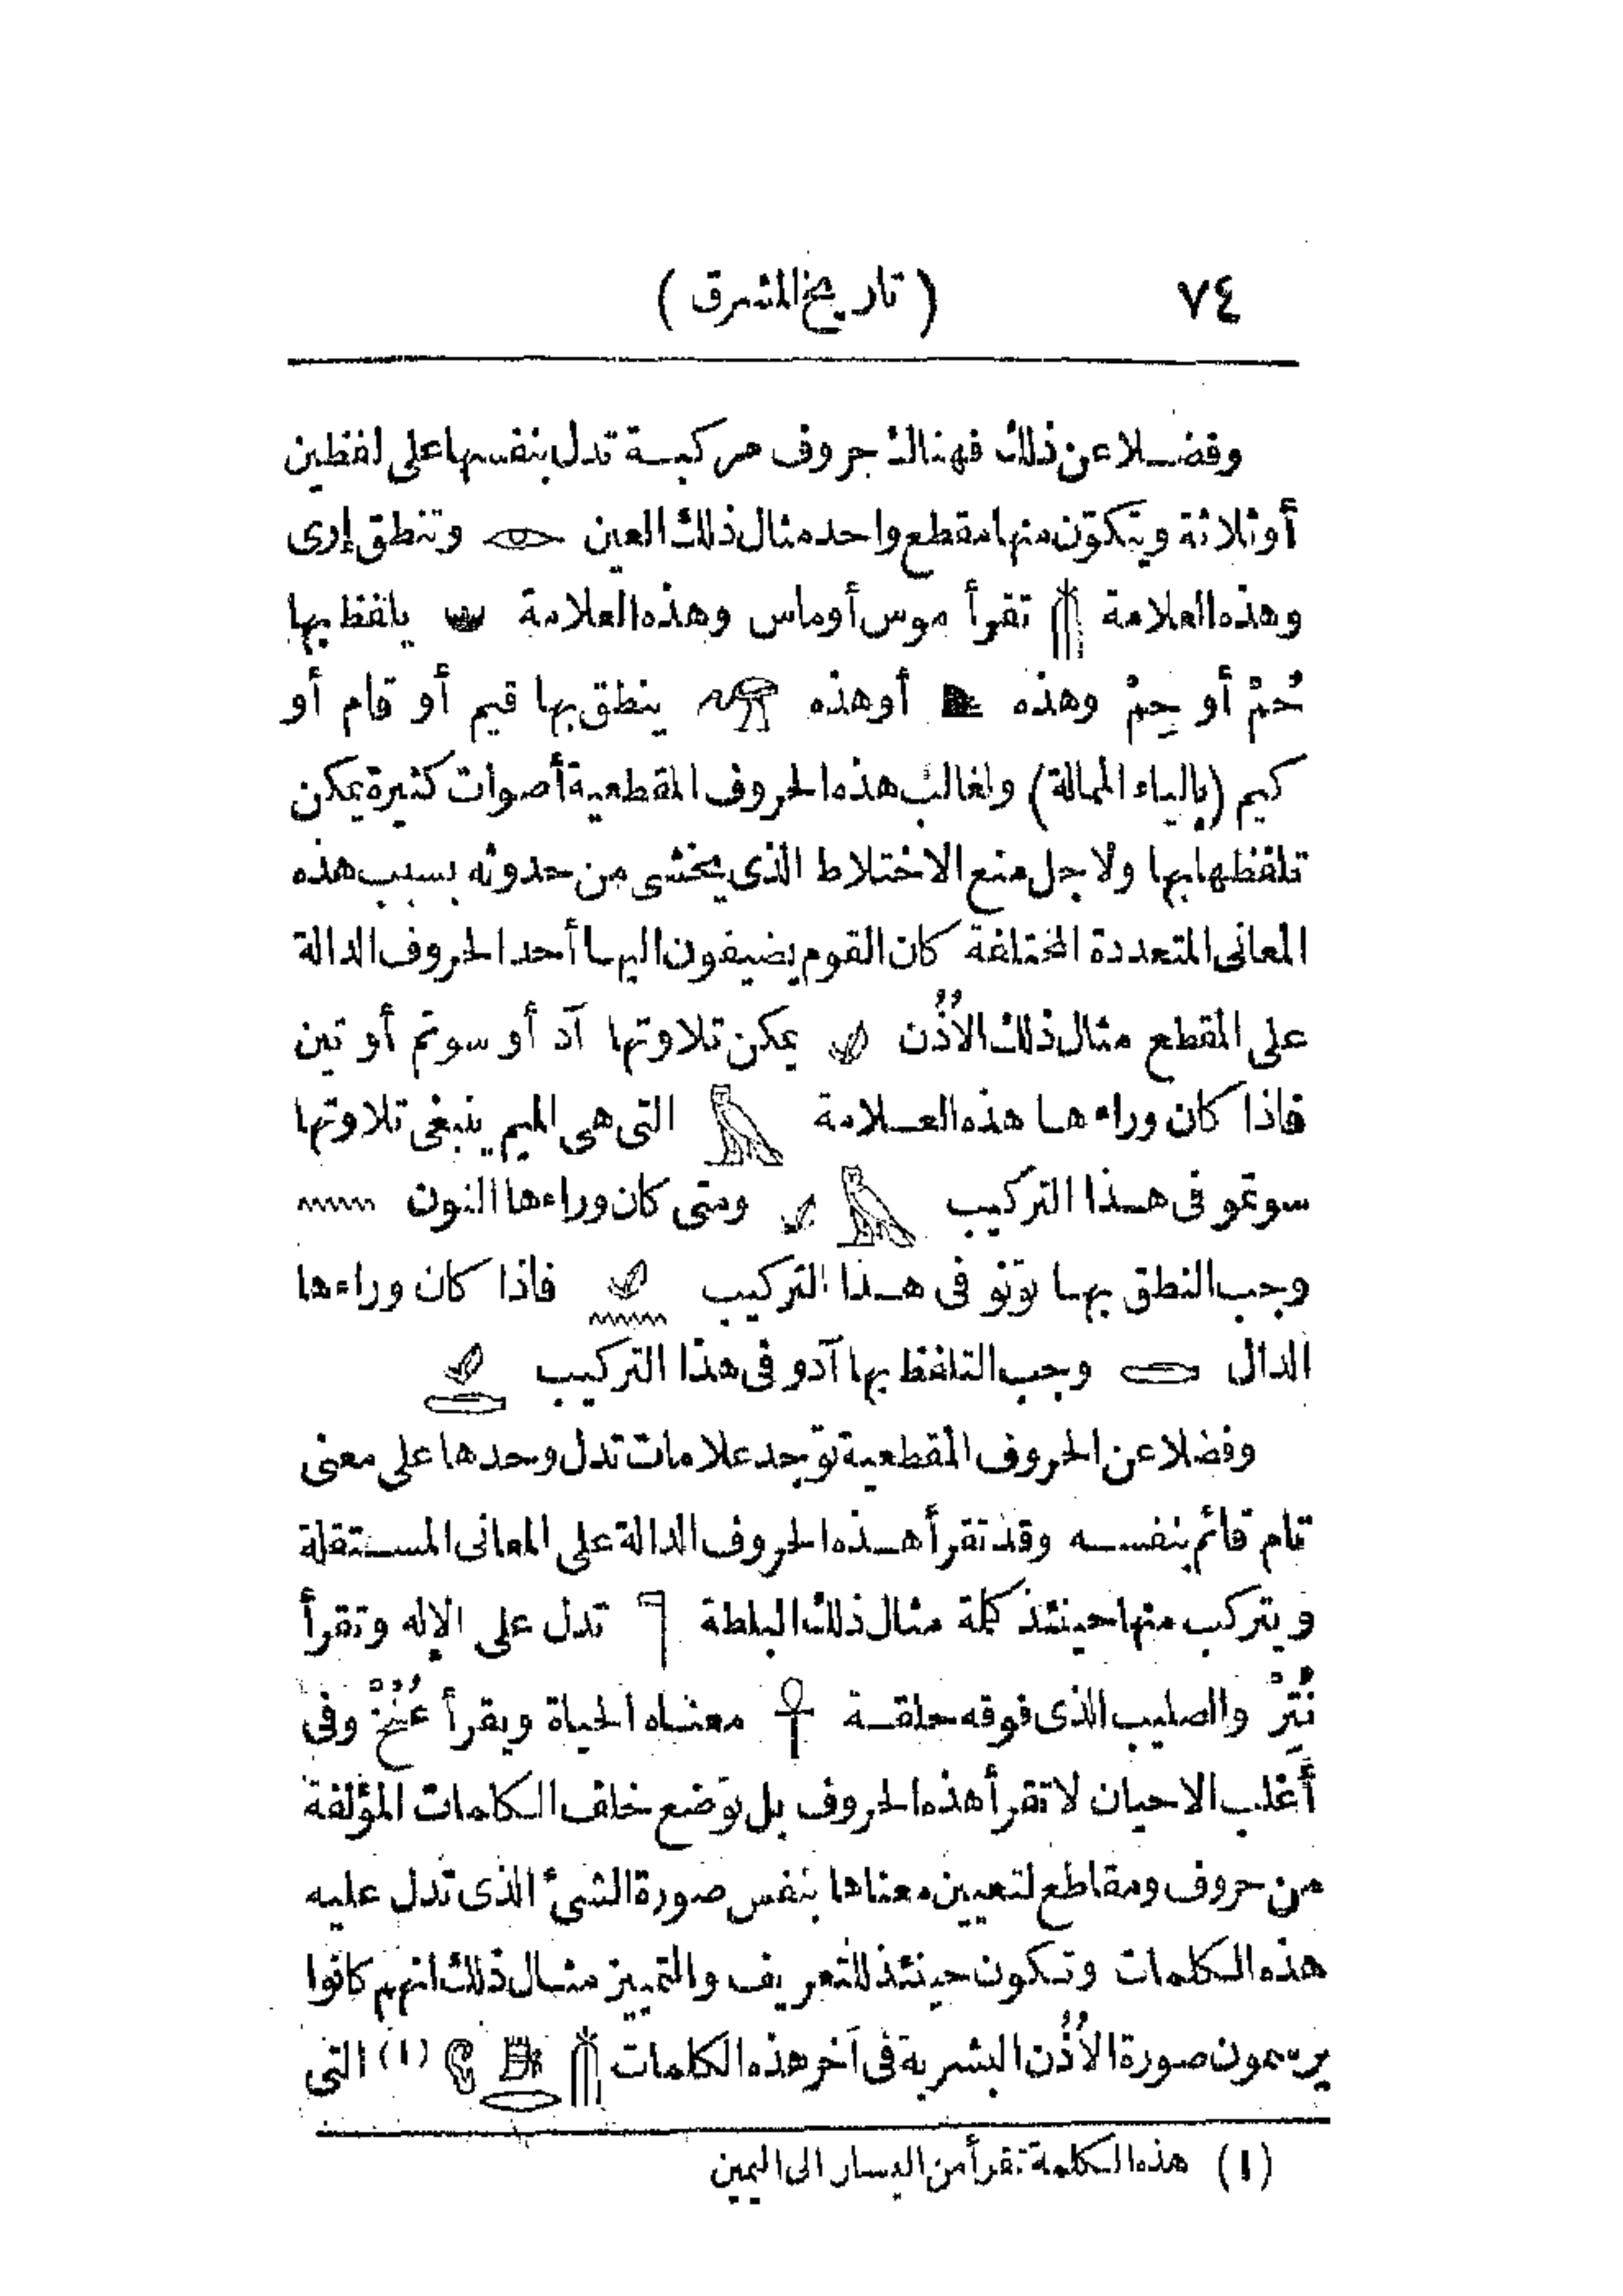 ٧٤
(تاريخ المشرق)
وفضلا عن ذلك فهناك حروف مركبة تدل بنفسها على لفظين
أو ثلاثة ويتكوّن منها مقطع واحد مثال ذلك العين 𓁹 وتنطق إرى
وهذه العلامة 𓄟 تقرأ موس أو ماس وهذه العلامة يلفظ بها
حُمْ أو حِمْ وهذه 𓆎 أو هذه ينطق بها قيم أو قام أو
كيم (بالياء الممالة) ولغالب هذه الحروف المقطعية أصوات كثيرة يمكن
تلفظها بها ولاجل منع الاختلاط الذى يخشى من حدوثه بسبب هذه
المعانى المتعددة المختلفة كان القوم يضيفون اليها أحد الحروف الدالة
على المقطع مثال ذلك الأُذُن 𓄔 يمكن تلاوتها آد أو سوتم أو تين
فاذا كان وراءها هذه العلامة 𓅓 التى هى الميم ينبغى تلاوتها
سوتمو فى هذا التركيب 𓅓 𓄔 ومتى كان وراءها النون 𓈖
وجب النطق بها توتو فى هذا التركيب 𓄔𓈖 فاذا كان وراءها
الدال 𓂧 وجب التلفظ بها آدو فى هذا التركيب 𓄔𓂧
وفضلا عن الحروف المقطعية توجد علامات تدل وحدها على معنى
تام قائم بنفسه وقد تقرأ هذه الحروف الدالة على المعانى المستقلة
ويتركب منها حينئذ كلمة مثال ذلك البلطة 𓊹 تدل على الإله وتقرأ
نُتِرْ والصليب الذى فوقه حلقة 𓋹 معناه الحياة ويقرأ عُنْخْ وفى
أغلب الاحيان لا تقرأ هذه الحروف بل توضع خلف الكلمات المؤلفة
من حروف ومقاطع لتعيين معناها بنفس صورة الشئ الذى تدل عليه
هذه الكلمات وتكون حينئذ للتعريف والتمييز مثال ذلك انهم كانوا
يرسمون صورة الأُذُن البشرية فى آخر هذه الكلمات (١) التى
(١) هذه الكلمة تقرأ من اليسار الى اليمين